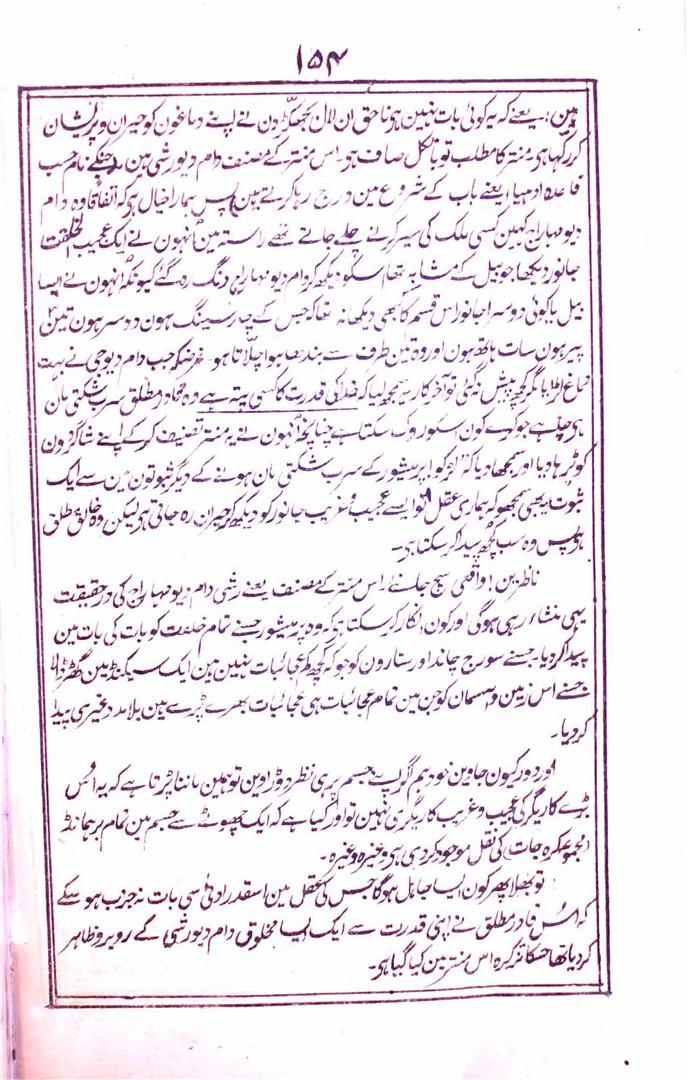 ۱۵۴
ہین: یعنے کہ یہ کوئی بات نہین ہو ناحق ان لال بجھکڑون نے اپنے دماغون کو حیران و پریشان
کر رکھا ہی یہ منتر کا مطلب تو بالکل صاف ہی۔ اس منتر کے مصنف دام دیو رشی ہین جنکے نام حسب
قاعدہ ادھیا (یعنے باب کے شروع مین درج رہا کرتے ہین) پس ہمارا خیال ہی کہ اتفاقاً وہ دام
دیو مہاراج کہین کسی ملک کی سیر کرنے چلے جاتے تھے راستہ مین انہون نے ایک عجیب الخلقت
جانور دیکھا جو بیل کے مشابہ تھا اسکو دیکھ کر دام دیو مہاراج دنگ رہ گئے کیونکہ انہون نے ایسا
بیل یا کوئی دوسرا جانور اس قسم کا کبھی دیکھا نہ تھا کہ جس کے چار سینگ ہون دو سر ہون تین
پیر ہون سات ہاتھ ہون اور وہ تین طرف سے بندھا ہوا چلّاتا ہو۔ غرضکہ جب دام دیو جی نے بہت
دماغ لڑایا مگر کچھ پیش نہ گئی تو آخر کار یہ سمجھ لیا کہ خدا کی قدرت کا کسے پتہ ہے وہ قادر مطلق سرب شکتی مان
ہی چاہے جو کرے کون اسکو روک سکتا ہے چنانچہ انہون نے یہ منتر تصنیف کر کے اپنے شاگردون
کو پڑہا دیا اور سمجھا دیا کہ لڑکو! پرمیشور کے سرب شکتی مان ہونے کے دیگر ثبوتون مین سے ایک
ثبوت یہ بھی سمجھو کہ ہماری عقل تو ایسے عجیب و غریب جانور کو دیکھ کر حیران رہ جاتی ہی لیکن وہ خالق مطلق
ہی پس وہ سب کچھ پیدا کر سکتا ہی۔
ناظرین! واقعی سچ جانئے۔ اس منتر کے مصنف یعنے رشی دام دیو مہاراج کی در حقیقت
یہی منشاء رہی ہوگی اور کون انکار کر سکتا ہی کہ وہ پرمیشور جسنے تمام خلقت کو بات کی بات مین
پیدا کر دیا۔ جسنے سورج چاند اور ستارون کو جو کہ کچھ کم عجائبات نہین ہین ایک سیکنڈ مین گھڑ ڈالا
جسنے اس زمین و آسمان کو جن مین تمام عجائبات ہی عجائبات بھرے پڑے ہین بلا مدد غیری پیدا
کر دیا۔
اور دور کیون جاوین خود ہم اگر اپنے جسم پر ہی نظر دوڑاوین تو ہمین ماننا پڑتا ہے کہ یہ اُس
بڑے کاریگر کی عجیب و غریب کاریگری نہین تو اور کیا ہے کہ ایک چھوٹے سے جسم مین تمام برہمانڈ
(مجموعہ کرہ جات) کی نقل موجود کر دی ہی وغیرہ وغیرہ۔
تو بھلا پھر کون ایسا جاہل ہوگا جس کی عقل مین اسقدر ادنیٰ سی بات نہ جزب ہو سکے
کہ اُس قادر مطلق نے اپنی قدرت سے ایک ایسا مخلوق دام دیو رشی کے روبرو ظاہر
کر دیا تھا جسکا تزکرہ اس منتر مین کیا گیا ہی۔